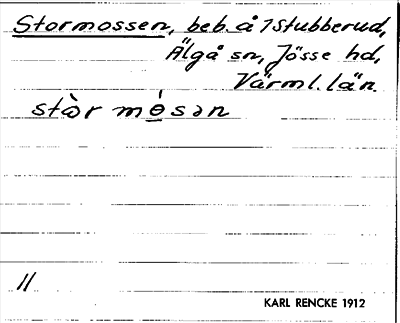 Stormossen, beb. å 7 Stubberud,
Älgå sn, Jösse hd,
Värml. län
stòr mósən
11
KARL RENCKE 1912